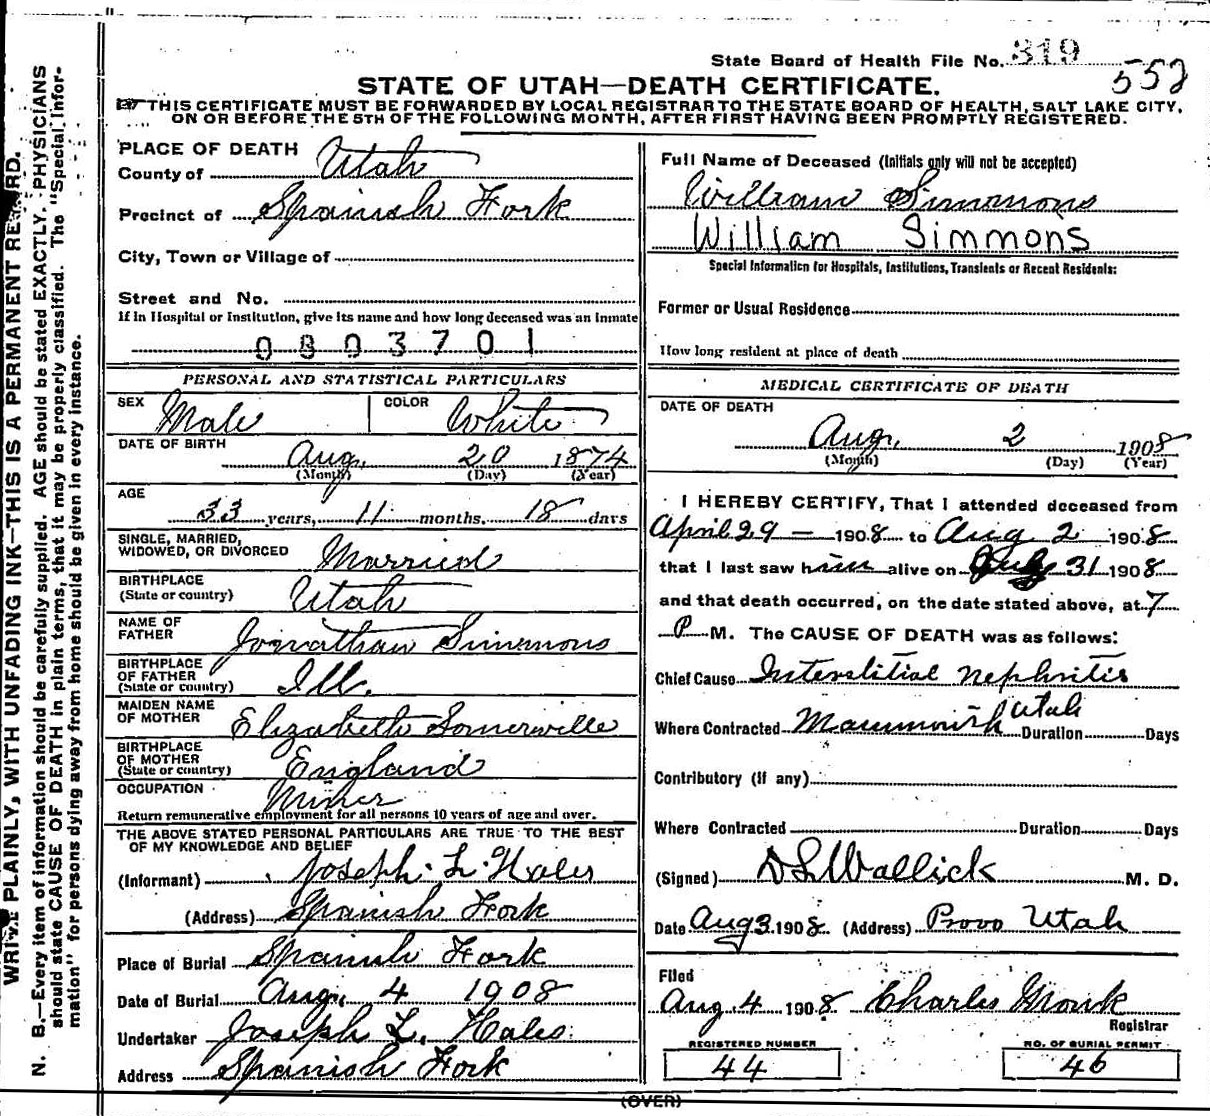 State Board of Health File No. 319
552
STATE OF UTAH—DEATH CERTIFICATE.
THIS CERTIFICATE MUST BE FORWARDED BY LOCAL REGISTRAR TO THE STATE BOARD OF HEALTH, SALT LAKE CITY,
ON OR BEFORE THE 5TH OF THE FOLLOWING MONTH, AFTER FIRST HAVING BEEN PROMPTLY REGISTERED.
PLACE OF DEATH
County of Utah
Precinct of Spanish Fork
City, Town or Village of
Street and No.
If in Hospital or Institution, give its name and how long deceased was an inmate
0803701
PERSONAL AND STATISTICAL PARTICULARS
SEX Male COLOR White
DATE OF BIRTH
Aug. 20 1874
(Month) (Day) (Year)
AGE
33 years, 11 months, 18 days
SINGLE, MARRIED,
WIDOWED, OR DIVORCED Married
BIRTHPLACE
(State or country) Utah
NAME OF
FATHER Jonathan Simmons
BIRTHPLACE
OF FATHER
(State or country) Ill.
MAIDEN NAME
OF MOTHER Elizabeth Somerville
BIRTHPLACE
OF MOTHER
(State or country) England
OCCUPATION Miner
Return remunerative employment for all persons 10 years of age and over.
THE ABOVE STATED PERSONAL PARTICULARS ARE TRUE TO THE BEST
OF MY KNOWLEDGE AND BELIEF
(Informant) Joseph L. Hales
(Address) Spanish Fork
Place of Burial Spanish Fork
Date of Burial Aug. 4 1908
Undertaker Joseph L. Hales
Address Spanish Fork
Full Name of Deceased (Initials only will not be accepted)
William Simmons
William Simmons
Special Information for Hospitals, Institutions, Transients or Recent Residents:
Former or Usual Residence
How long resident at place of death
MEDICAL CERTIFICATE OF DEATH
DATE OF DEATH
Aug. 2 1908
(Month) (Day) (Year)
I HEREBY CERTIFY, That I attended deceased from
April 29 — 1908 to Aug 2 1908
that I last saw him alive on July 31 1908
and that death occurred, on the date stated above, at 7
P M. The CAUSE OF DEATH was as follows:
Chief Cause Interstitial Nephritis
Where Contracted Mammoth Utah Duration Days
Contributory (if any)
Where Contracted Duration Days
(Signed) D L Wallick M. D.
Date Aug 3 1908 (Address) Provo Utah
Filed
Aug. 4 1908 Charles Monk
Registrar
REGISTERED NUMBER
44
NO. OF BURIAL PERMIT
46
(OVER)
WRITE PLAINLY, WITH UNFADING INK—THIS IS A PERMANENT RECORD.
N. B.—Every item of information should be carefully supplied. AGE should be stated EXACTLY. PHYSICIANS
should state CAUSE OF DEATH in plain terms, that it may be properly classified. The "Special Infor-
mation" for persons dying away from home should be given in every instance.